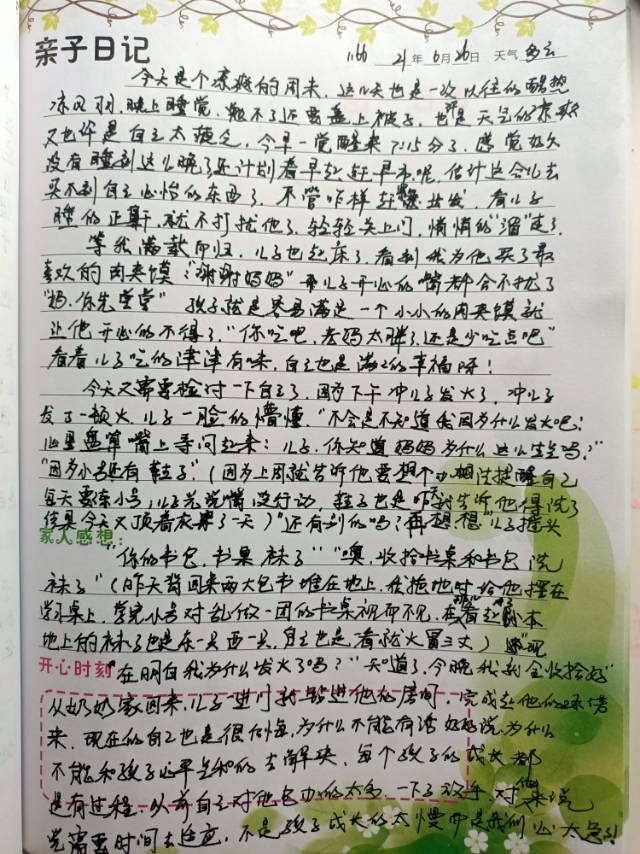 亲子日记 1166 21年6月26日 天气 多云
今天是个凉爽的周末，这几天也是一改以往的酷热
凉风习习，晚上睡觉，都不了还要盖上被子，也许是天气的凉爽
又也许是自己太疲乏，今早一觉醒来7:15分了，感觉好久
没有睡到这么晚了还计划着早起赶早市呢，估计这会儿去
买不到自己心怡的东西了，不管咋样赶紧出发，看儿子
睡的正鼾，就不打扰他了，轻轻关上门，悄悄的"溜"走了.
等我满载而归，儿子也起床了，看到我为他买了最
喜欢的肉夹馍："谢谢妈妈" 儿子开心的嘴都合不拢了
"妈，你先尝尝" 孩子就是容易满足一个小小的肉夹馍就
让他开心的不得了，"你吃吧，老妈太胖了还是少吃点吧"
看着儿子吃的津津有味，自己也是满满的幸福呀！
今天又需要检讨一下自己了，因为下午冲儿子发火了，冲儿子
发了一顿火，儿子一脸的懵懂，"不会是不知道我因为什么发火吧；
心里盘算嘴上等问起来：儿子，你知道妈妈为什么这么生气吗？"
"因为小号还有鞋子"（因为上周就告诉他要想个办法提醒自己
每天要练小号，儿子光说嘴没行动，鞋子也是昨我告诉他得洗了
结果今天又顶着衣架了一天）"还有别的吗？再想想"儿子摇头
家人感想：
"你的书包，书桌，袜子" "噢，收拾书桌和书包，洗
袜子"（昨天背回来两大包书堆在地上，我拖地时给他摆在
学习桌上，学完小号对乱做一团的书桌视而不见，在看起剧本
地上的袜子也是东一只西一只，自己也是看就火冒三丈）
开心时刻 "现在明白我为什么发火了吗？""知道了，今晚我就全收拾好"
从奶奶家回来，儿子进门就钻进他的房间，完成起他的承诺
来，现在的自己也是很后悔，为什么不能有话好好说，为什么
不能和孩子心平气和的去解决，每个孩子的成长都
是有过程，以前自己对他包办的太多，一下子放手，对他来说
是需要时间去适应，不是孩子成长的太慢而是我们心太急了！